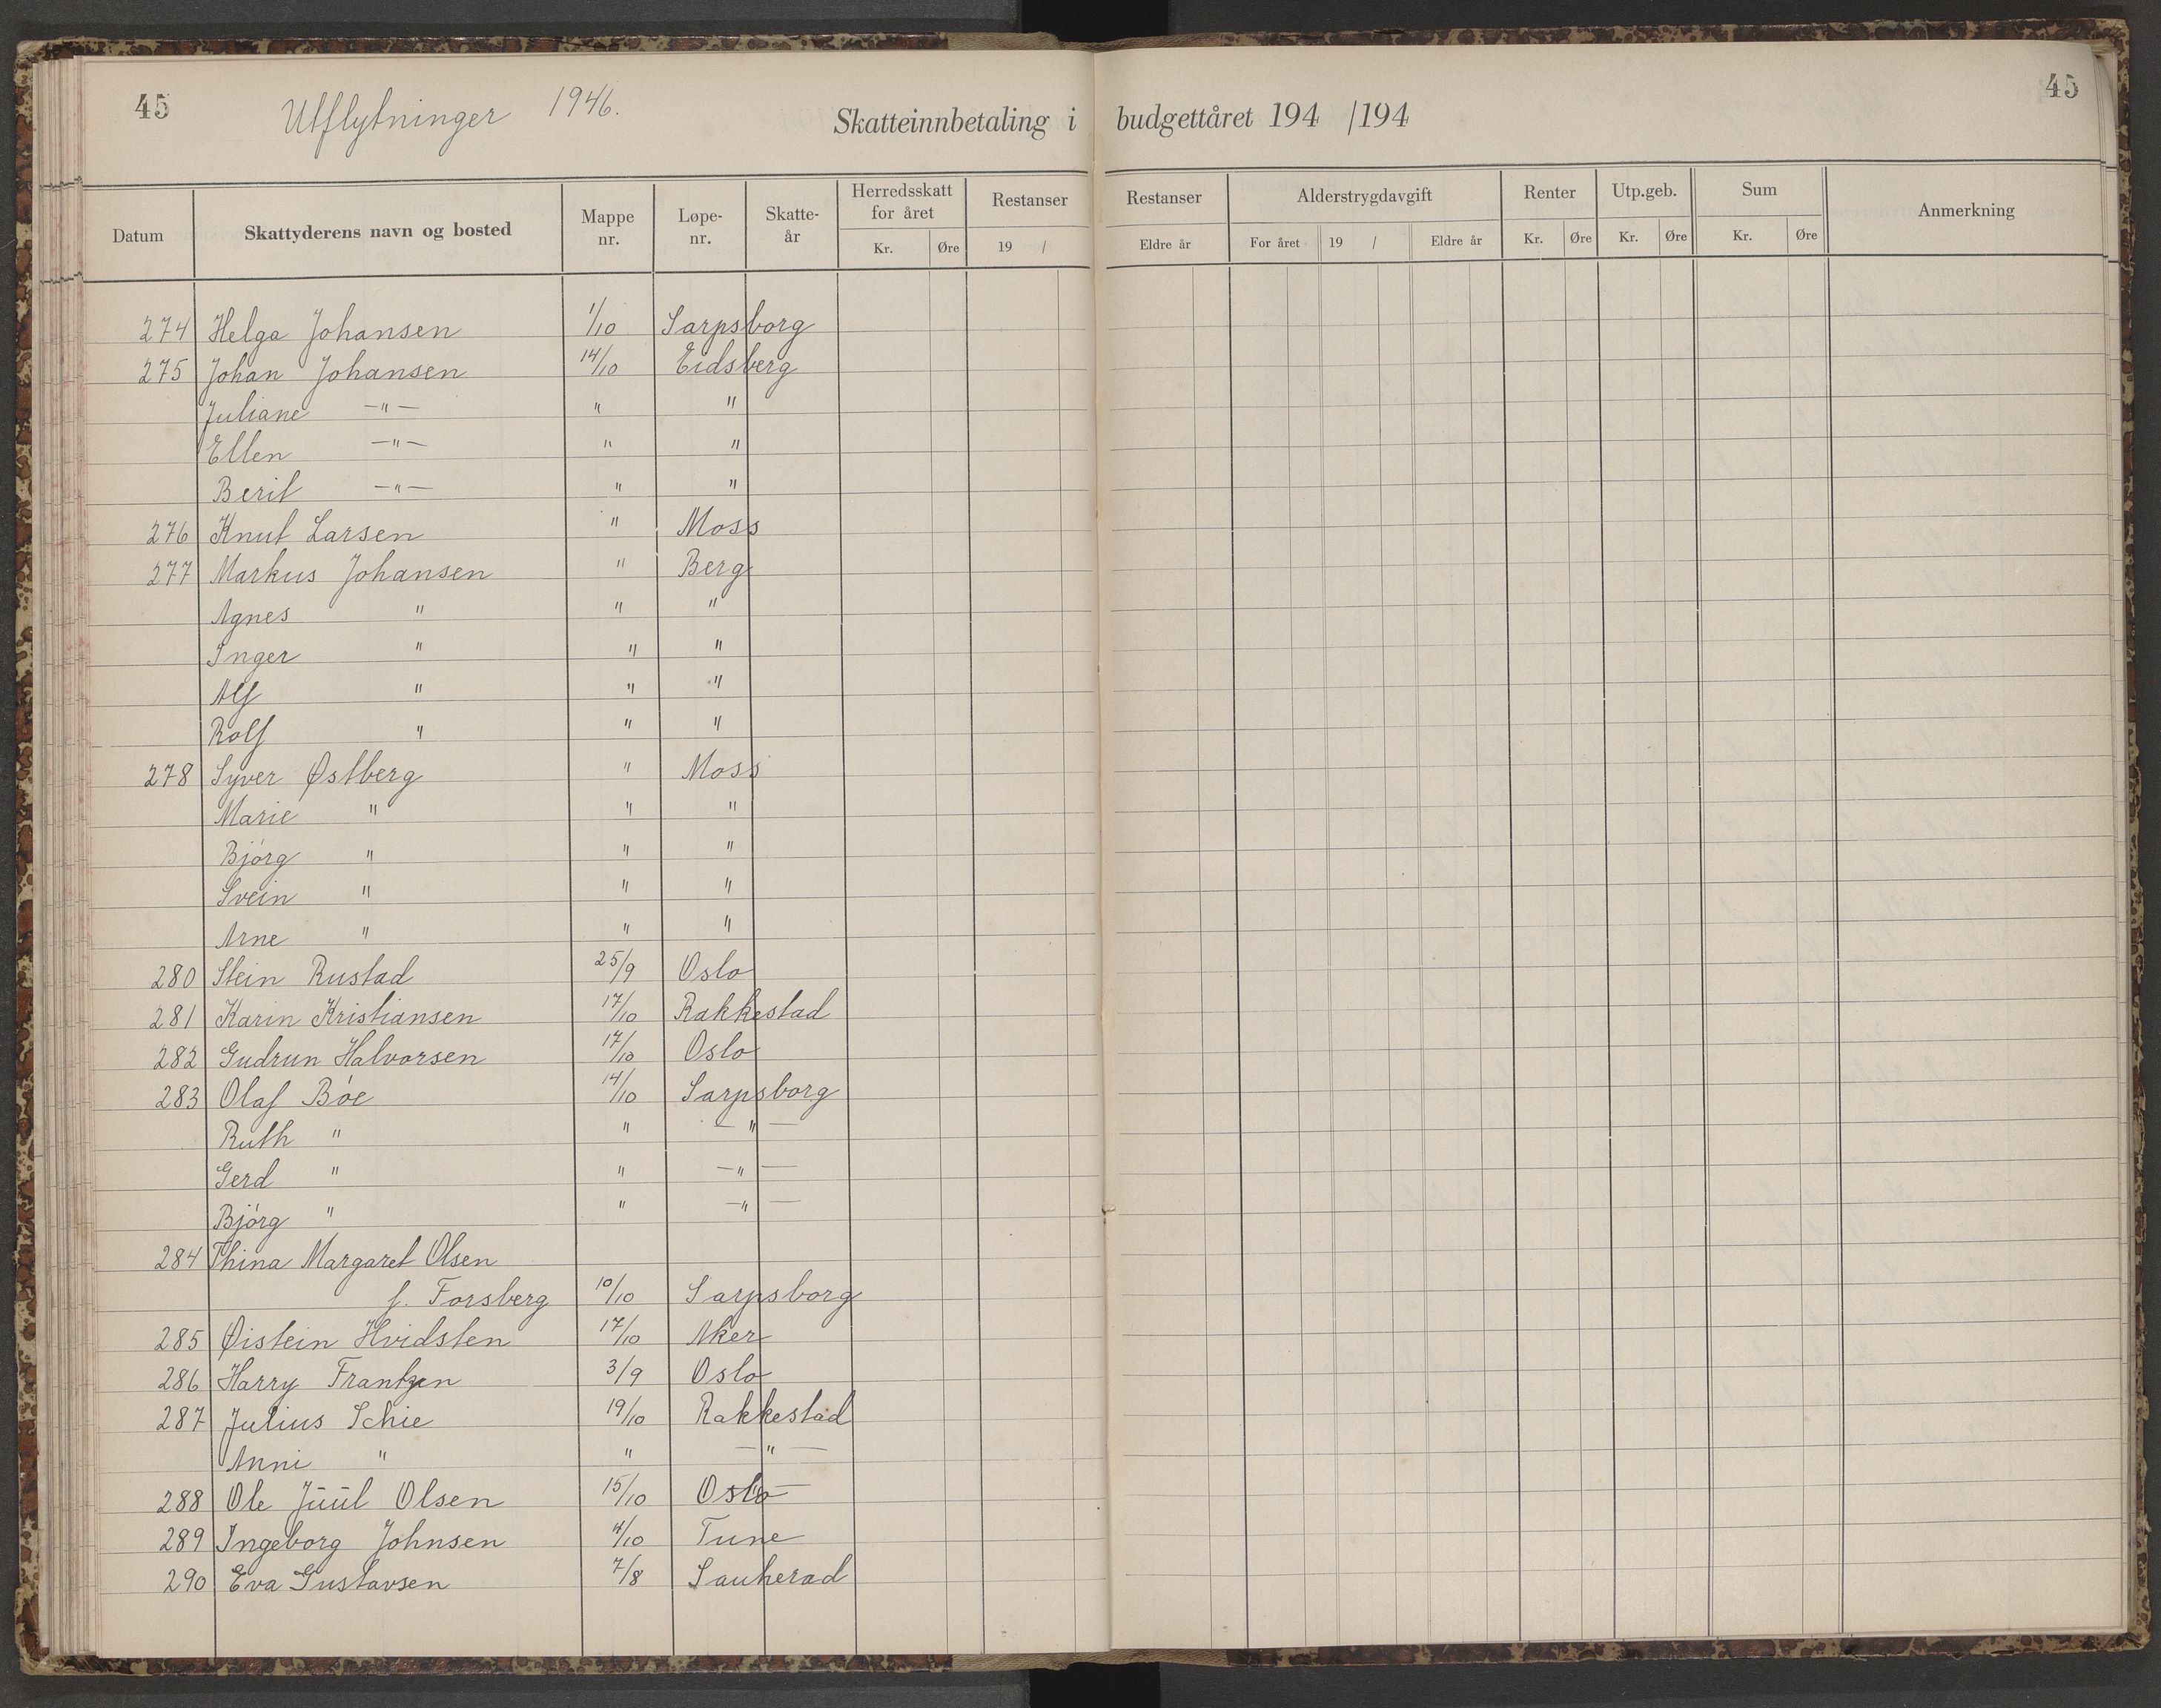 45 Utflytninger 1946. Skatteinnbetaling i budgettåret 194 /194 45
Datum Skattyderens navn og bosted Mappe nr. Løpe-nr. Skatte-år Herredsskatt for året Kr. Øre Restanser 19 / Restanser Eldre år Alderstrygdavgift For året 19 / Eldre år Renter Kr. Øre Utp.geb. Kr. Øre Sum Kr. Øre Anmerkning
274 Helga Johansen 1/10 Sarpsborg
275 Johan Johansen 14/10 Eidsberg
Juliane —"— " "
Ellen —"— " "
Berit —"— " "
276 Knut Larsen " Moss
277 Markus Johansen " Berg
Agnes " " "
Inger " " "
Alf " " "
Rolf " " "
278 Syver Østberg " Moss
Marie " " "
Bjórg " " "
Svein " " "
Arne " " "
280 Stein Rustad 25/9 Oslo
281 Karin Kristiansen 17/10 Rakkestad
282 Gudrun Halvorsen 17/10 Oslo
283 Olaf Bóe 14/10 Sarpsborg
Ruth " " —"—
Gerd " " —"—
Bjórg " " —"—
284 Thina Margaret Olsen
f. Forsberg 10/10 Sarpsborg
285 Øistein Hvidsten 17/10 Aker
286 Harry Frantzen 3/9 Oslo
287 Julius Schie 19/10 Rakkestad
Anni " " —"—
288 Ole Juul Olsen 15/10 Oslo
289 Ingeborg Johnsen 4/10 Tune
290 Eva Gustavsen 7/8 Sauherad